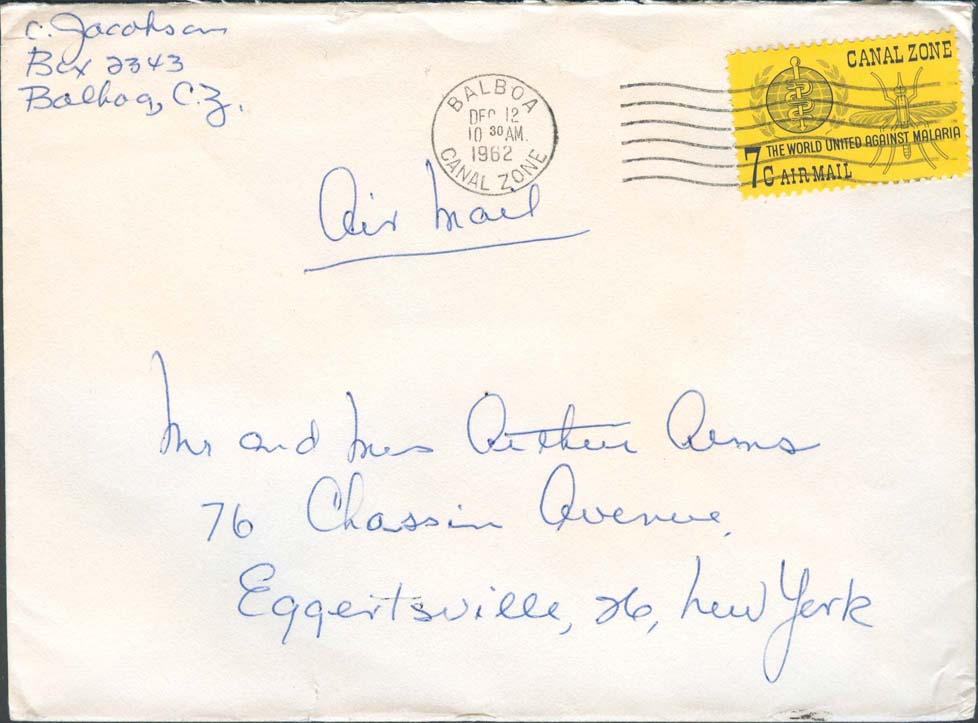 C. Jacobson
Box 2343
Balboa, C.Z.
BALBOA
DEC 12
10 30 AM.
1962
CANAL ZONE
CANAL ZONE
THE WORLD UNITED AGAINST MALARIA
7c AIR MAIL
Air Mail
Mr and Mrs Arthur Arms
76 Chassin Avenue,
Eggertsville, 26, New York